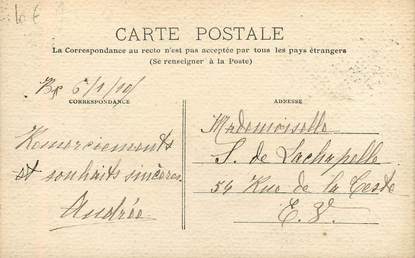 10 €
CARTE POSTALE
La Correspondance au recto n'est pas acceptée par tous les pays étrangers
(Se renseigner à la Poste)
Bx 6/1/10
CORRESPONDANCE
Remerciements
et souhaits sincères
Andrée
ADRESSE
Mademoiselle
S. de Lachapelle
54 Rue de la Teste
E. V.